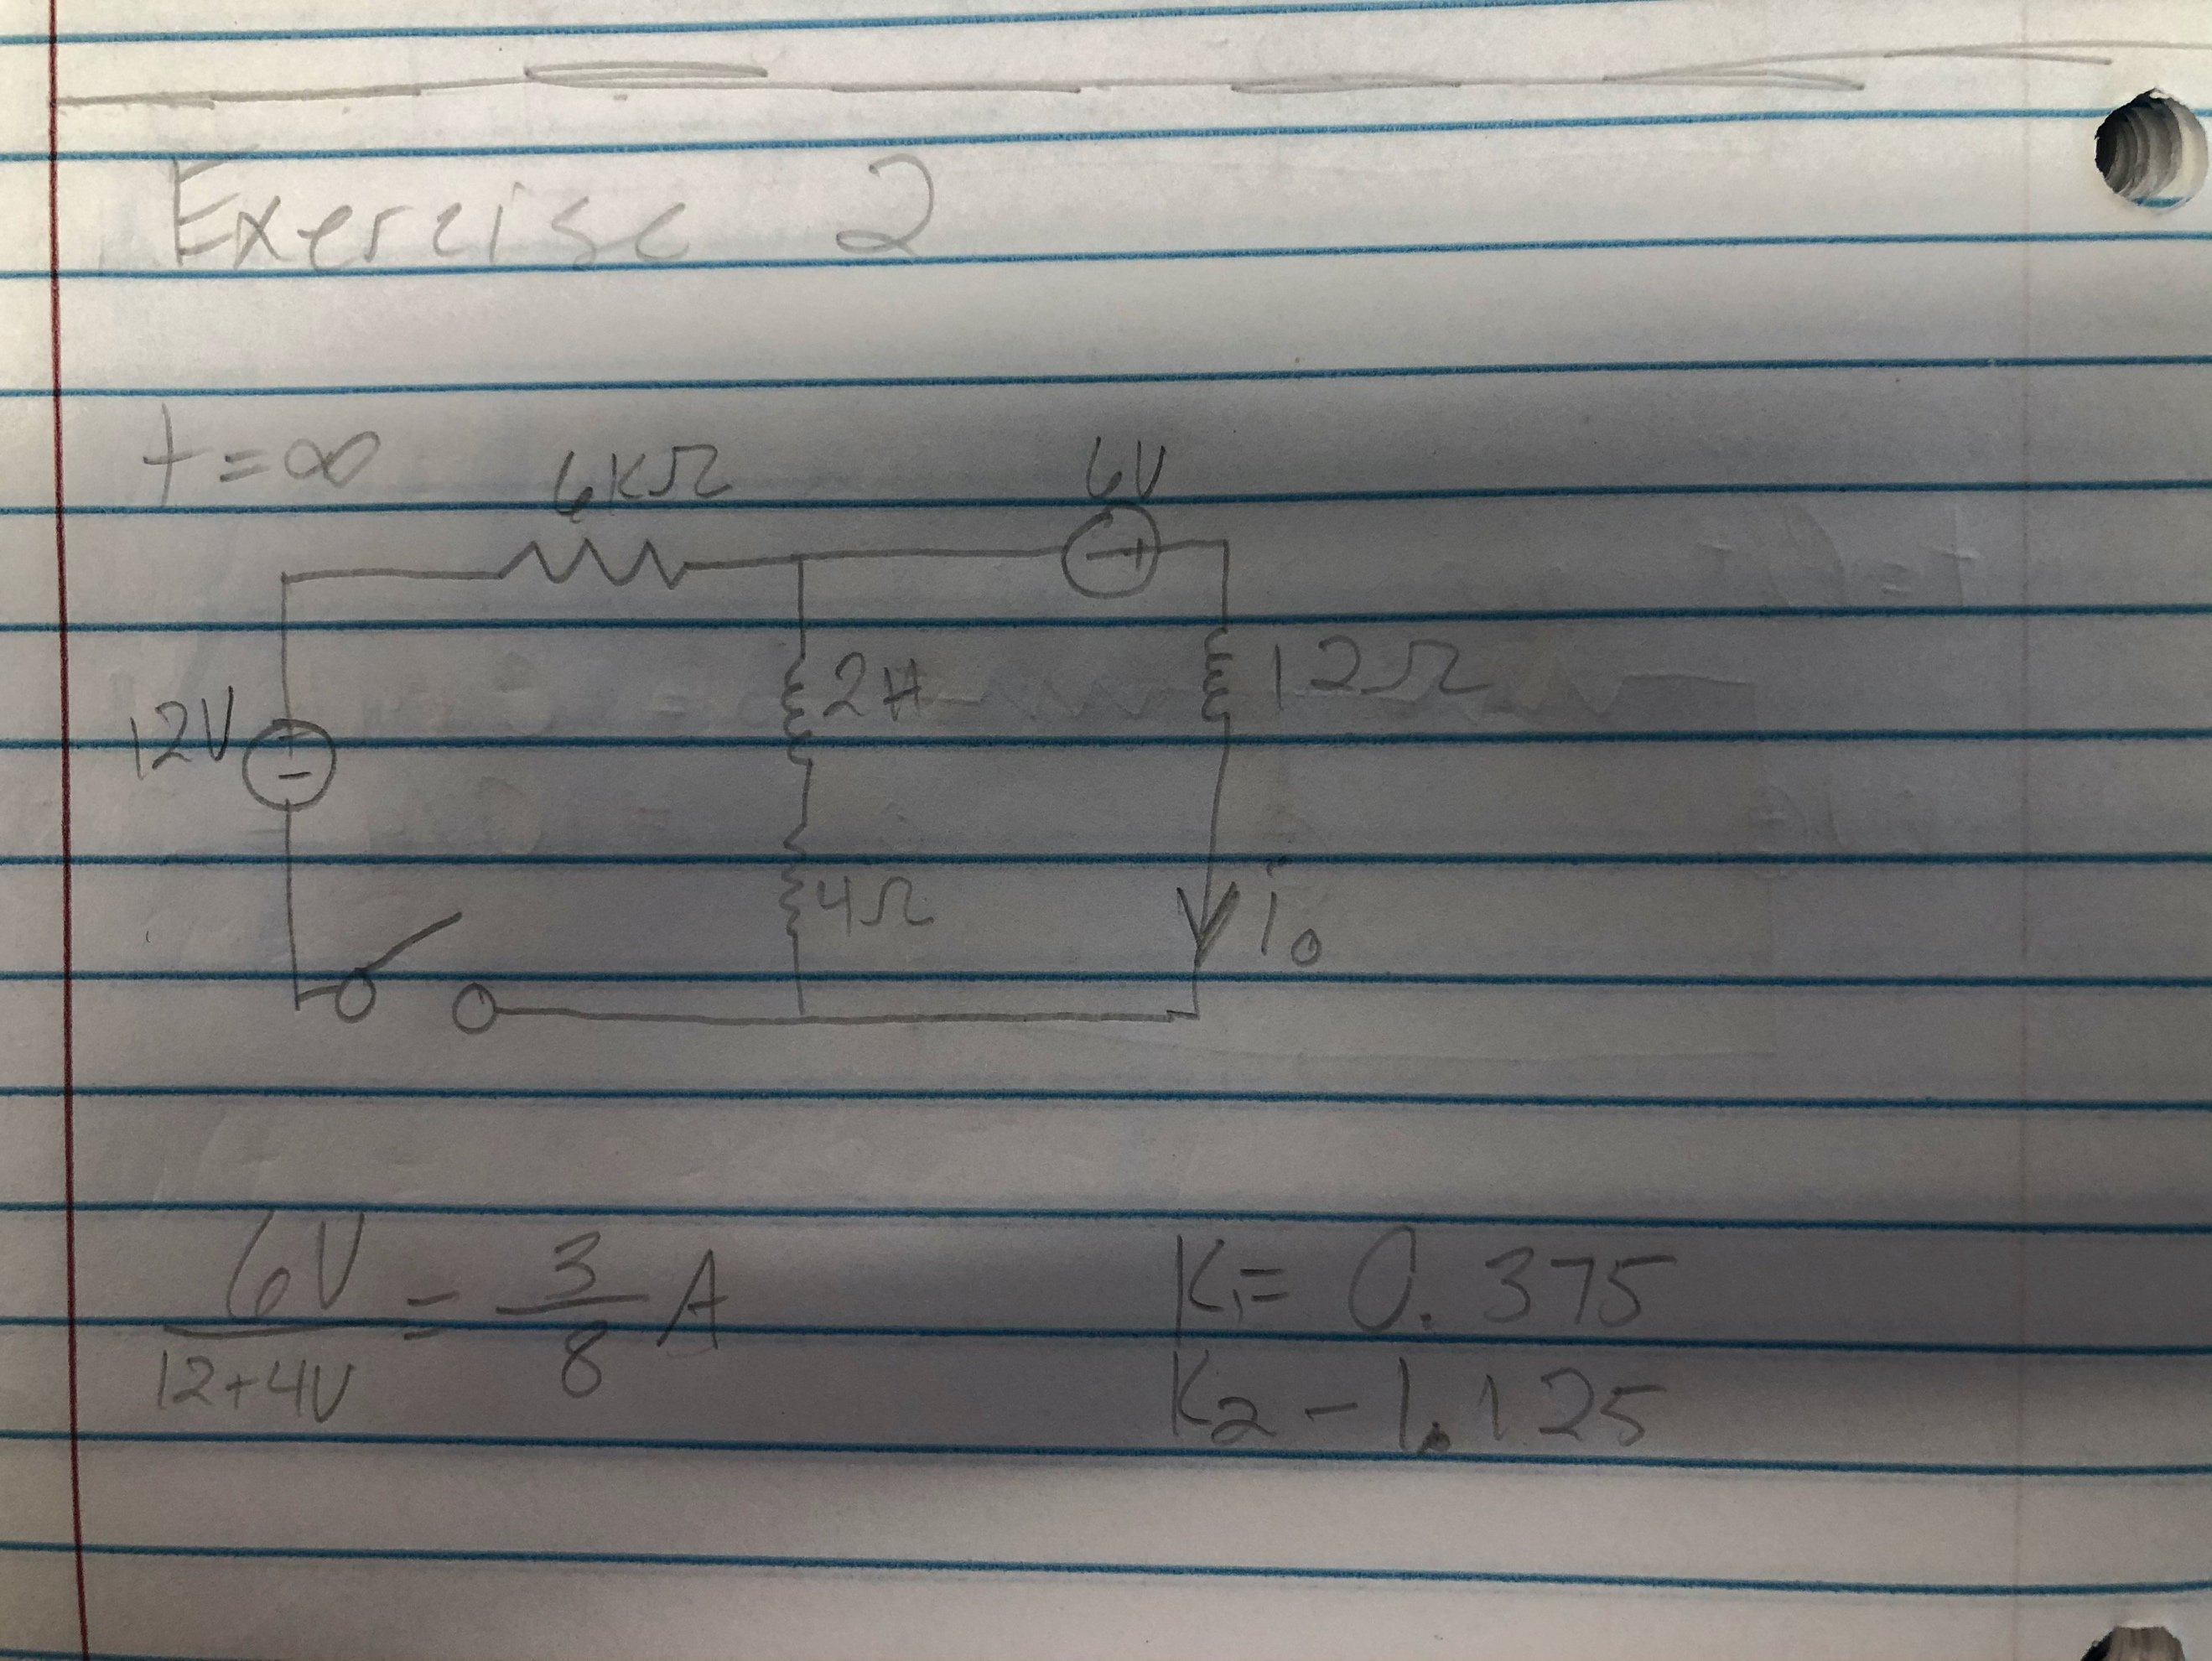 Exercise 2
t=∞
6KΩ
6V
- +
12V
-
2H
12Ω
4Ω
i₀
6V/12+4V = 3/8 A
K₁= 0.375
K₂ - 1.125